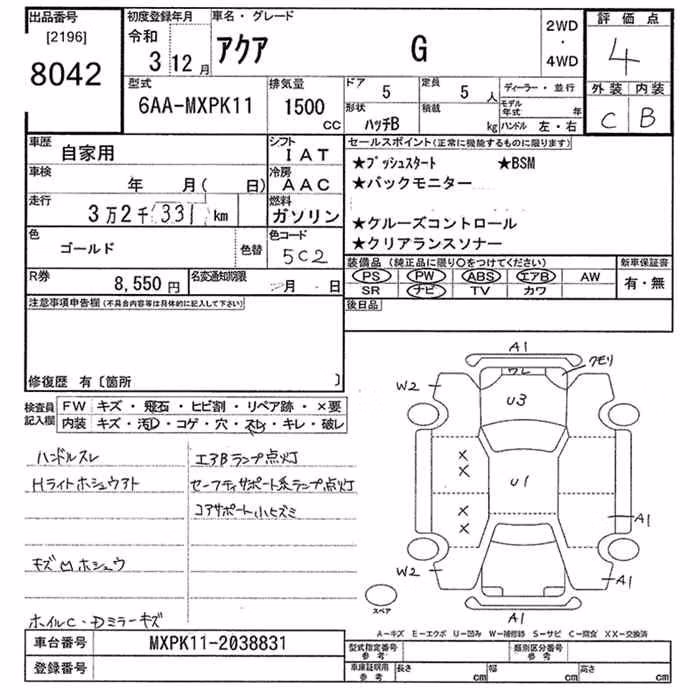 出品番号
[2196]
8042
初度登録年月
令和
3 12月
車名・グレード
アクア G
2WD
・
4WD
評価点
4
外装 内装
C B
型式
6AA-MXPK11
排気量
1500
CC
ドア 5
定員 5 人
形状 ハッチB
積載 kg
ディーラー・並行
モデル年式 年
ハンドル 左・右
車歴 自家用
シフト IAT
車検 年 月( 日)
冷房 AAC
走行 3万2千331km
燃料 ガソリン
色 ゴールド
色替
色コード 5C2
R券 8,550円
名変通知期限 月 日
セールスポイント(正常に機能するものに限ります)
★プッシュスタート ★BSM
★バックモニター
★クルーズコントロール
★クリアランスソナー
装備品(純正品に限り○をつけてください)
PS PW ABS エアB AW
SR ナビ TV カワ
新車保証書
有・無
後日品
注意事項申告欄(不具合内容等は具体的に記入して下さい)
修復歴 有〔箇所 〕
検査員記入欄
FW キズ・飛石・ヒビ割・リペア跡・×要
内装 キズ・汚レ・コゲ・穴・スレ・キレ・破レ
ハンドルスレ
Hライトホシュウアト
キズMホシュウ
ホイルC・Dミラーキズ
エアBランプ点灯
セーフティサポート系ランプ点灯
コアサポート小ヒズミ
A1
クモリ
ワレ
W2
U3
×
×
U1
×
×
A1
W2
A1
A1
スペア
A-キズ E-エクボ U-凹み W-補修跡 S-サビ C-腐食 XX-交換済
車台番号 MXPK11-2038831
登録番号
型式指定番号
参考
類別区分番号
参考
車庫証明用
参考
長さ cm
幅 cm
高さ cm